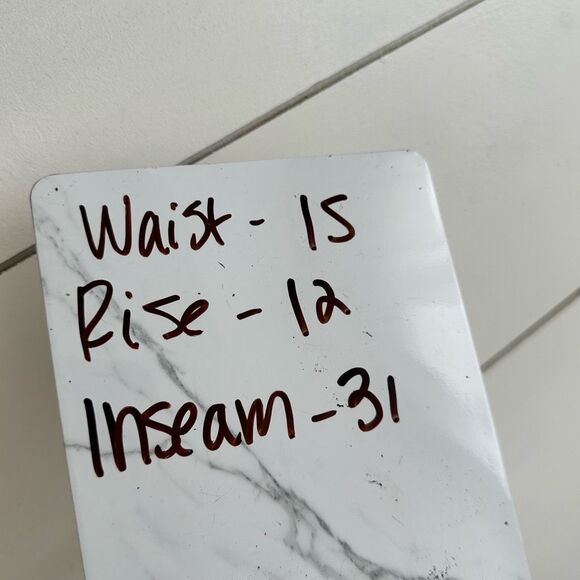 Waist - 15
Rise - 12
Inseam - 31